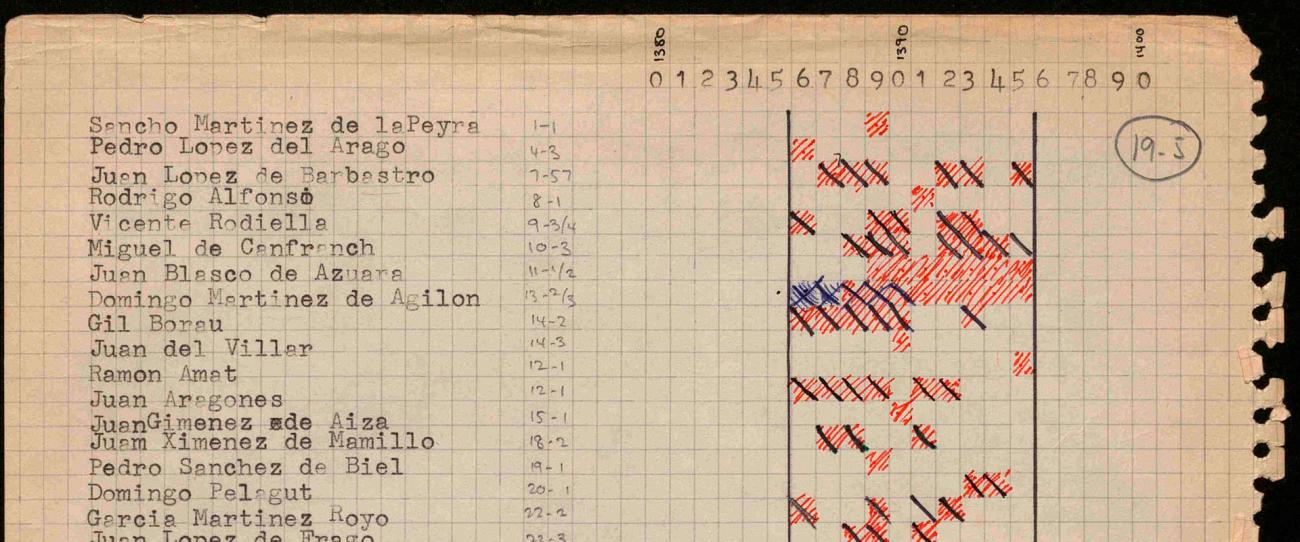 1380 1390 1400
0 1 2 3 4 5 6 7 8 9 0 1 2 3 4 5 6 7 8 9 0
Sancho Martinez de laPeyra 1-1
19-5
Pedro Lopez del Arago 4-3
Juan Lopez de Barbastro 7-57
Rodrigo Alfonso 8-1
Vicente Rodiella 9-3/4
Miguel de Canfranch 10-3
Juan Blasco de Azuara 11-1/2
Domingo Martinez de Agilon 13-2/3
Gil Borau 14-2
Juan del Villar 14-3
Ramon Amat 12-1
Juan Aragones 12-1
JuanGimenez de Aiza 15-1
Juam Ximenez de Mamillo 18-2
Pedro Sanchez de Biel 19-1
Domingo Pelagut 20-1
Garcia Martinez Royo 22-2
Juan Lopez de Frago 22-3